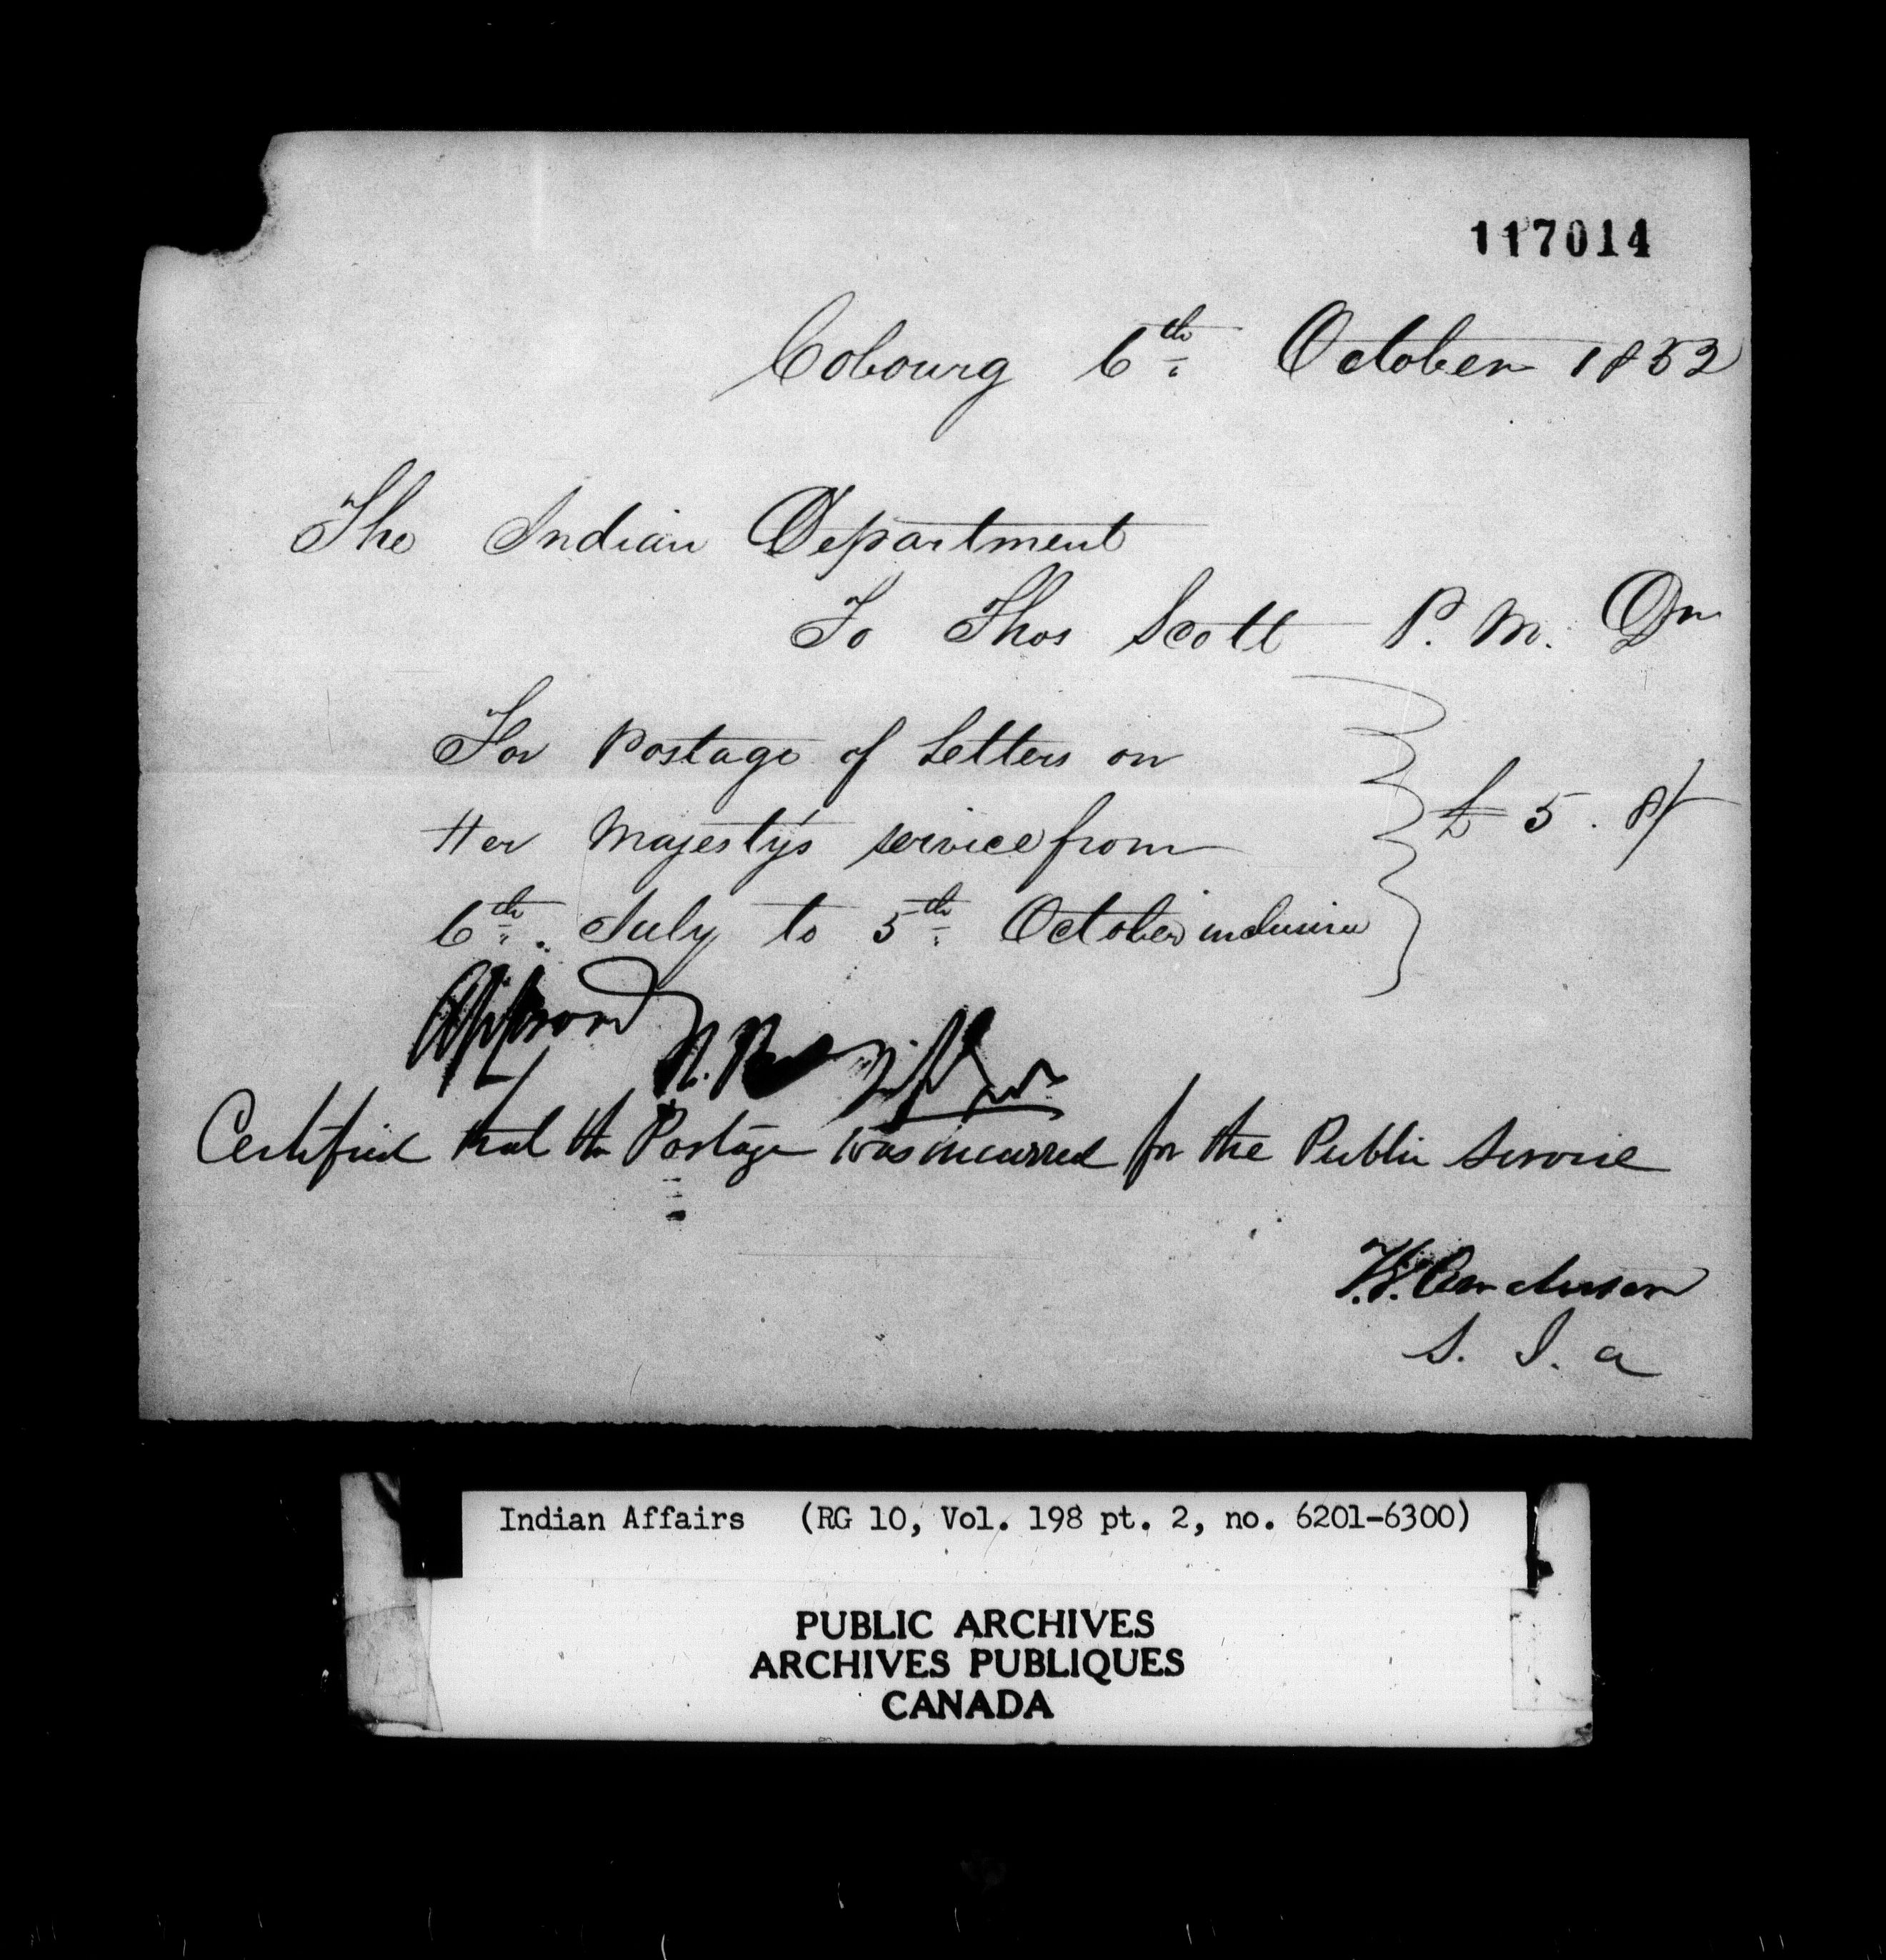 117014
Cobourg 6th October 1852
The Indian Department
To Thos Scott P. M. Dr
For Postage of Letters on
Her Majesty's service from
6th July to 5th October inclusive
£ 5. 8/
Approved
Certified that the Postage was incurred for the Public Service
T.G. Anderson
S. I. a
Indian Affairs (RG 10, Vol. 198 pt. 2, no. 6201-6300)
PUBLIC ARCHIVES
ARCHIVES PUBLIQUES
CANADA